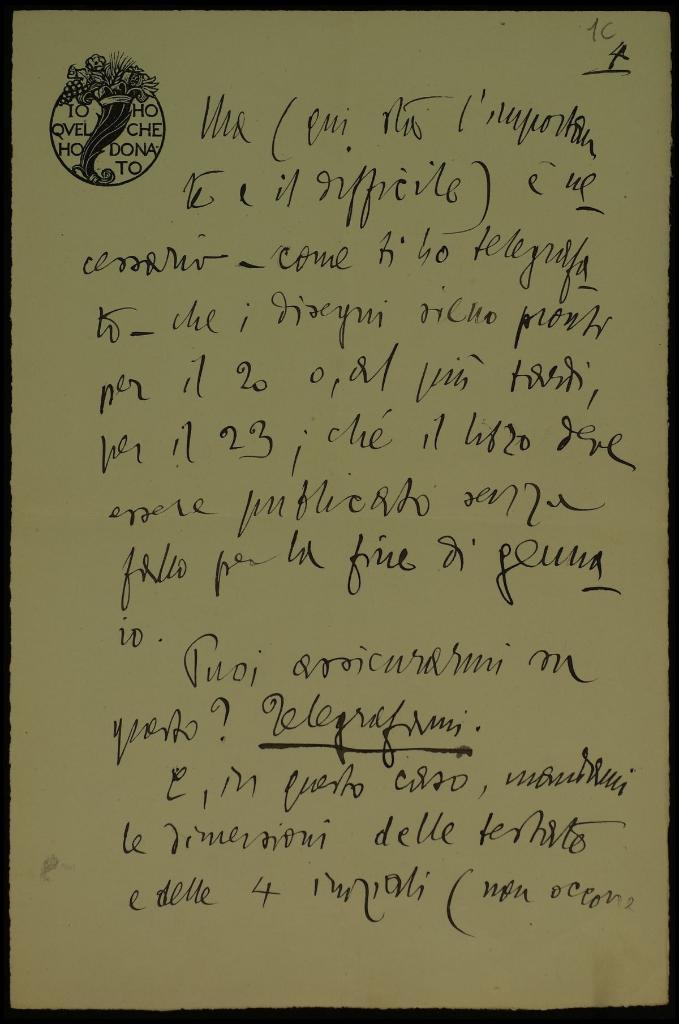 1C
4
IO HO
QVEL CHE
HO DONA-
TO
Ma (qui stà l'importan
te e il difficile) è ne
cessario - come ti hò telegrafa
to - che i disegni sieno pronti
per il 20 o, al più tardi,
per il 23; ché il libro deve
essere publicato senza
fallo per la fine di genna
io.
Puoi assicurarmi su
questo? Telegrafami.
E, in questo caso, mandami
le dimensioni delle testate
e delle 4 iniziali (non occorre